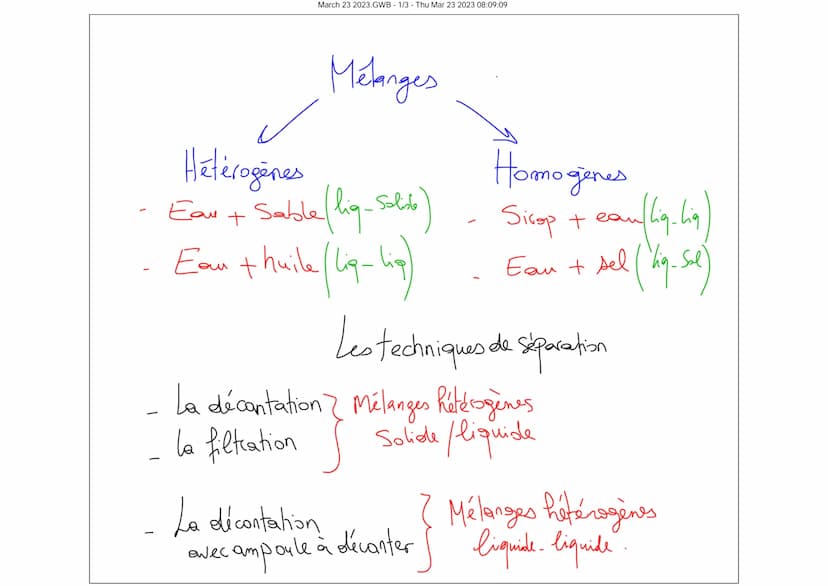 March 23 2023.GWB - 1/3 - Thu Mar 23 2023 08:09:09
Mélanges
Hétérogènes
Homogènes
- Eau + Sable (liq - Solide)
- Sirop + eau (liq - liq)
- Eau + huile (liq - liq)
- Eau + sel (liq - Sol)
Les techniques de séparation
- La décantation } Mélanges hétérogènes
- la filtration Solide / liquide
- La décantation } Mélanges hétérogènes
avec ampoule à décanter liquide - liquide.